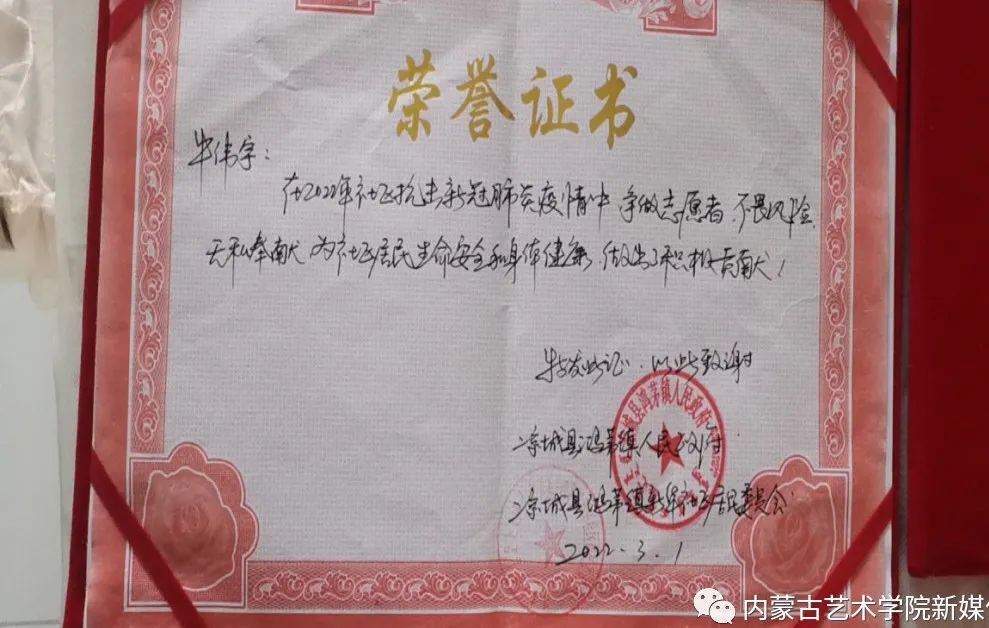 荣誉证书
牛伟宇：
在2022年社区抗击新冠肺炎疫情中 争做志愿者 不畏风险
无私奉献 为社区居民生命安全和身体健康，做出了积极贡献！
特发此证、以此致谢
城县鸿茅镇人民政府
凉城县鸿茅镇人民政府
凉城县鸿茅镇新华社区居民委员会
2022.3.1
内蒙古艺术学院新媒